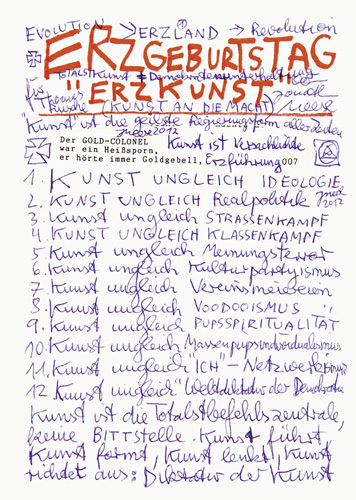 EVOLUTION → ERZLAND → Revolution
ERZGEBURTSTAG
TOTALSTKUNST ≠ Demokratenunterhaltung
"ERZKUNST"
für Thomas
(KUNST AN DIE MACHT)
Meese
"Kunst" ist die geilste Regierungsform aller Zeiten
Meese 2012
Der GOLD-COLONEL
war ein Heißsporn,
er hörte immer Goldgebell,
Kunst ist Verschlußte
Erzführung 007
1. KUNST UNGLEICH IDEOLOGIE
2. KUNST UNGLEICH Realpolitik
Meese 2012
3. Kunst ungleich STRASSENKAMPF
4. KUNST UNGLEICH KLASSENKAMPF
5 Kunst ungleich Meinungsterror
6. Kunst ungleich Kulturpartyismus
7. Kunst ungleich Vereinsmeierein
8. Kunst ungleich VOODOOISMUS
9. Kunst ungleich PUPSSPIRITUALITÄT
10. Kunst ungleich Massenpupsindividualismus
11. Kunst ungleich "ICH"-Netzwerk
12 Kunst ungleich "Weltdiktatur der Demokratie
Kunst ist die Totalstbefehlszentrale,
keine BITTSTELLE. Kunst führt,
Kunst formt, Kunst lenkt, Kunst
richtet aus: Diktatur der Kunst